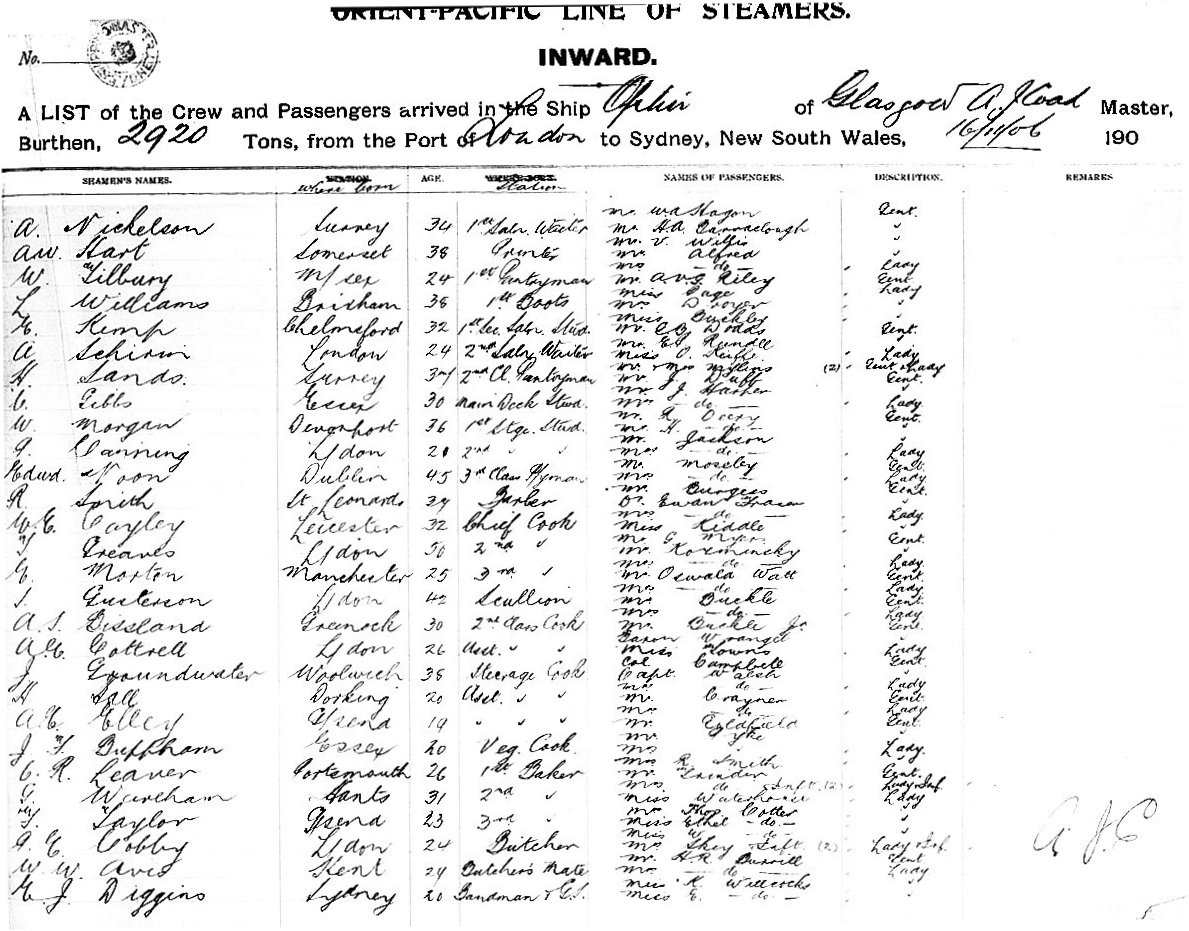 ORIENT-PACIFIC LINE OF STEAMERS.
No.
INWARD.
A LIST of the Crew and Passengers arrived in the Ship Ophir of Glasgow A. J. Coad Master,
Burthen, 2920 Tons, from the Port of London to Sydney, New South Wales, 16/11/06 190
SEAMEN'S NAMES. STATION. where born AGE. Station NAMES OF PASSENGERS. DESCRIPTION. REMARKS
A. Nickelson Surrey 34 1st Saln. Waiter
A.W. Hart Somerset 38 Printer
W. Tilbury M/sex 24 1st Pantryman
L. Williams Brixham 38 1st Boots
E. Kemp Chelmsford 32 1st Sec. Saln. Stwd.
A. Schirin London 24 2nd Saln. Waiter
H. Sands. Surrey 34 2nd Cl. Pantryman
C. Gibbs Essex 30 Main Deck Stwd.
W. Morgan Devonport 36 1st Stge. Stwd.
G. Canning L/don 21 2nd " "
Edwd. Noon Dublin 45 3rd Class
R. Smith St Leonards 29 Barber
W.E. Cayley Leicester 32 Chief Cook
T. Greaves L/don 50 2nd "
G. Morton Manchester 25 3rd "
S. Gusterson L/don 42 Scullion
A.S. Bissland Greenock 30 2nd Class Cook
A.E. Cottrell L/don 26 Asst. " "
J. Groundwater Woolwich 38 Steerage Cook
H. Dorking 20 Asst. " "
A.E. Elley G/send 19 " " "
J.T. Buffham Essex 20 Veg. Cook
C.R. Leaver Portsmouth 26 1st Baker
G. Wareham Hants 31 2nd "
Taylor G/send 23 3rd "
G.E. Cobby L/don 24 Butcher
W.W. Avis Kent 29 Butcher's Mate
E.J. Diggins Sydney 20 Bandman & G.S.
Mr. W A Hagon Gent.
Mr. H.A. Barraclough "
Mr. V. Willis "
Mr. Alfred "
Mrs - do - Lady
Mr. A.V.G. Riley Gent
Miss Page Lady
Mrs Dwyer "
Miss Buckley "
Mr. C.B. Dodds Gent.
Mr. E. Rundle "
Miss O. Keiffe Lady
Mr. & Mrs (2) Gent & Lady
Mr. J. Duff Gent.
Mr. J. Harper "
Mrs - do - Lady
Mr. R. Gent.
Mr. H. - do - "
Mr. Jackson "
Mrs - do - Lady
Mr. Moseley Gent.
Mrs - do - Lady
Mr. Burgess Gent.
Dr. Ewan Fraser "
Mrs - do - Lady
Miss Kiddle "
Mr. G. Myers Gent.
Mr. Kozminsky "
Mrs - do - Lady
Mr. Oswald Watt Gent
Mrs - do - Lady
Mr. Buckle Gent.
Mrs - do - Lady
Mr. Buckle Jr. Gent.
Baron Wrangel "
Miss Towns Lady
Col. Campbell Gent
Capt. Walsh "
Mrs - do - Lady
Mr. Crayner Gent
Mrs - do - Lady
Mr. Coldfield Gent.
Mr. Tyke "
Mrs Lady.
Mrs R. Smith "
Mr. Grinder Gent.
Mrs do & Inft. (2) Lady & Inf.
Miss Waterhouse Lady
Mrs Thos Cotter "
Miss Ethel - do - "
Miss W. - do - "
Mrs Skey & Inft. (2) Lady & Inf.
Mr. H.R. Burrill Gent
Mrs - do - Lady
Miss K. Willcocks "
Miss E. - do - "
A. J. C